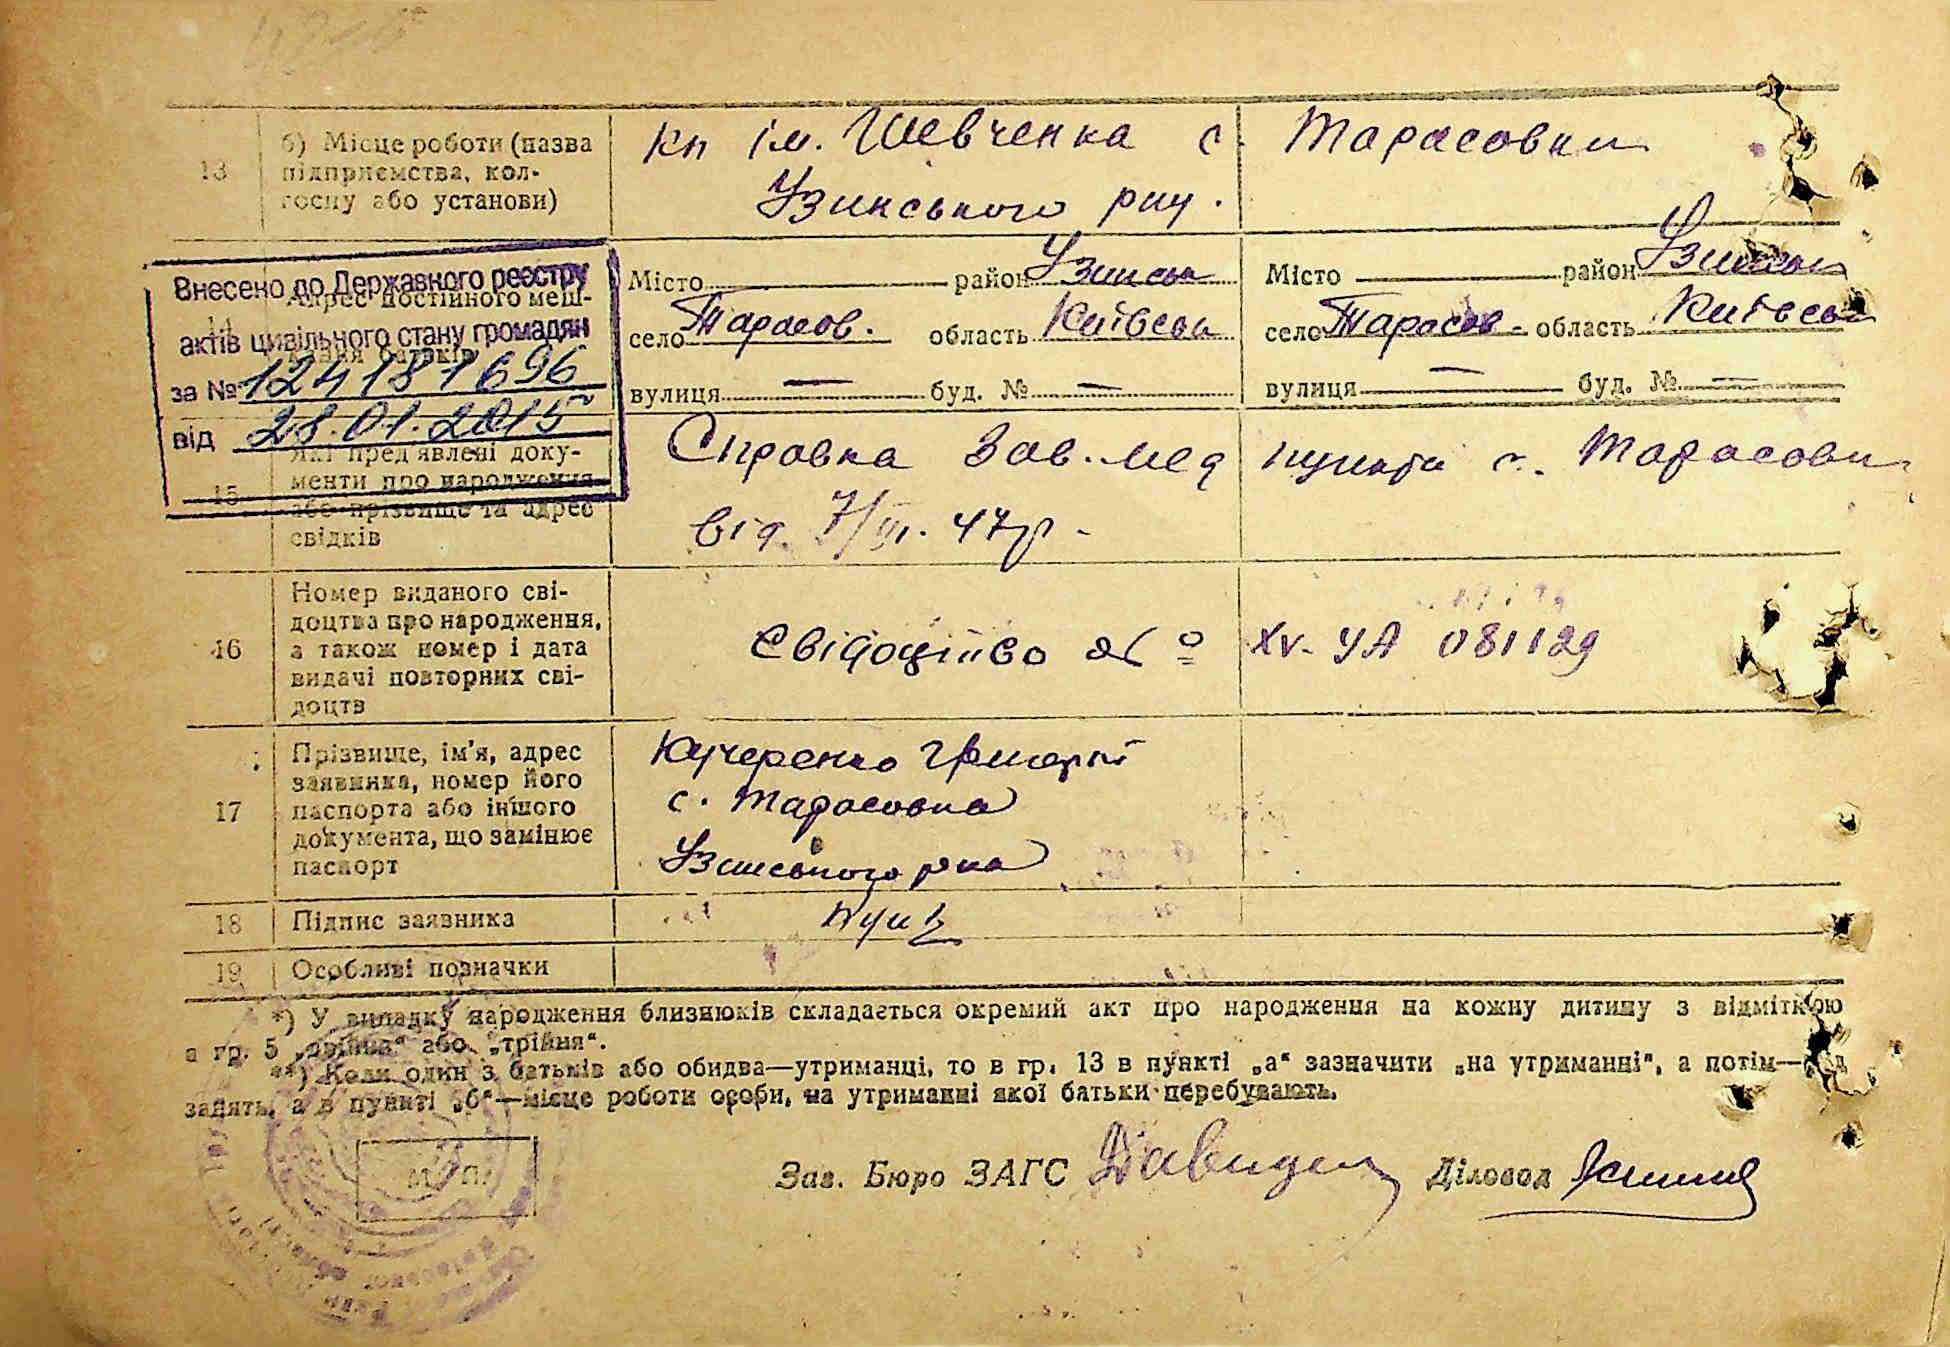 13
б) Місце роботи (назва
підприємства, кол-
госпу або установи)
кп ім. Шевченка с. Тарасовки
Узинського р-ну.
Внесено до Державного реєстру
актів цивільного стану громадян
за № 124181696
від 28.01.2015
14
Адрес постійного меш-
кання батьків
Місто — район Узинськ
село Тарасов. область Київськ
вулиця — буд. № —
Місто — район Узинськ
село Тарасов - область Київськ
вулиця — буд. № —
15
Які пред'явлені доку-
менти про народження
або прізвище та адрес
свідків
Справка Зав. мед пункта с. Тарасовки
від 7/VI. 47р -
16
Номер виданого сві-
доцтва про народження,
а також номер і дата
видачі повторних сві-
доцтв
Свідоцтво № XV- УА 081129
17
Прізвище, ім'я, адрес
заявника, номер його
паспорта або іншого
документа, що замінює
паспорт
Кучеренко Григорій
с. Тарасовка
Узинського р-на
18
Підпис заявника
19
Особливі позначки
*) У випадку народження близнюків складається окремий акт про народження на кожну дитину з відміткою
в гр. 5 „двійня“ або „трійня“.
**) Коли один з батьків або обидва—утриманці, то в гр. 13 в пункті „а“ зазначити „на утриманні“, а потім—рід
занять, а в пункті „б“—місце роботи особи, на утриманні якої батьки перебувають.
М. П.
Зав. Бюро ЗАГС
Діловод